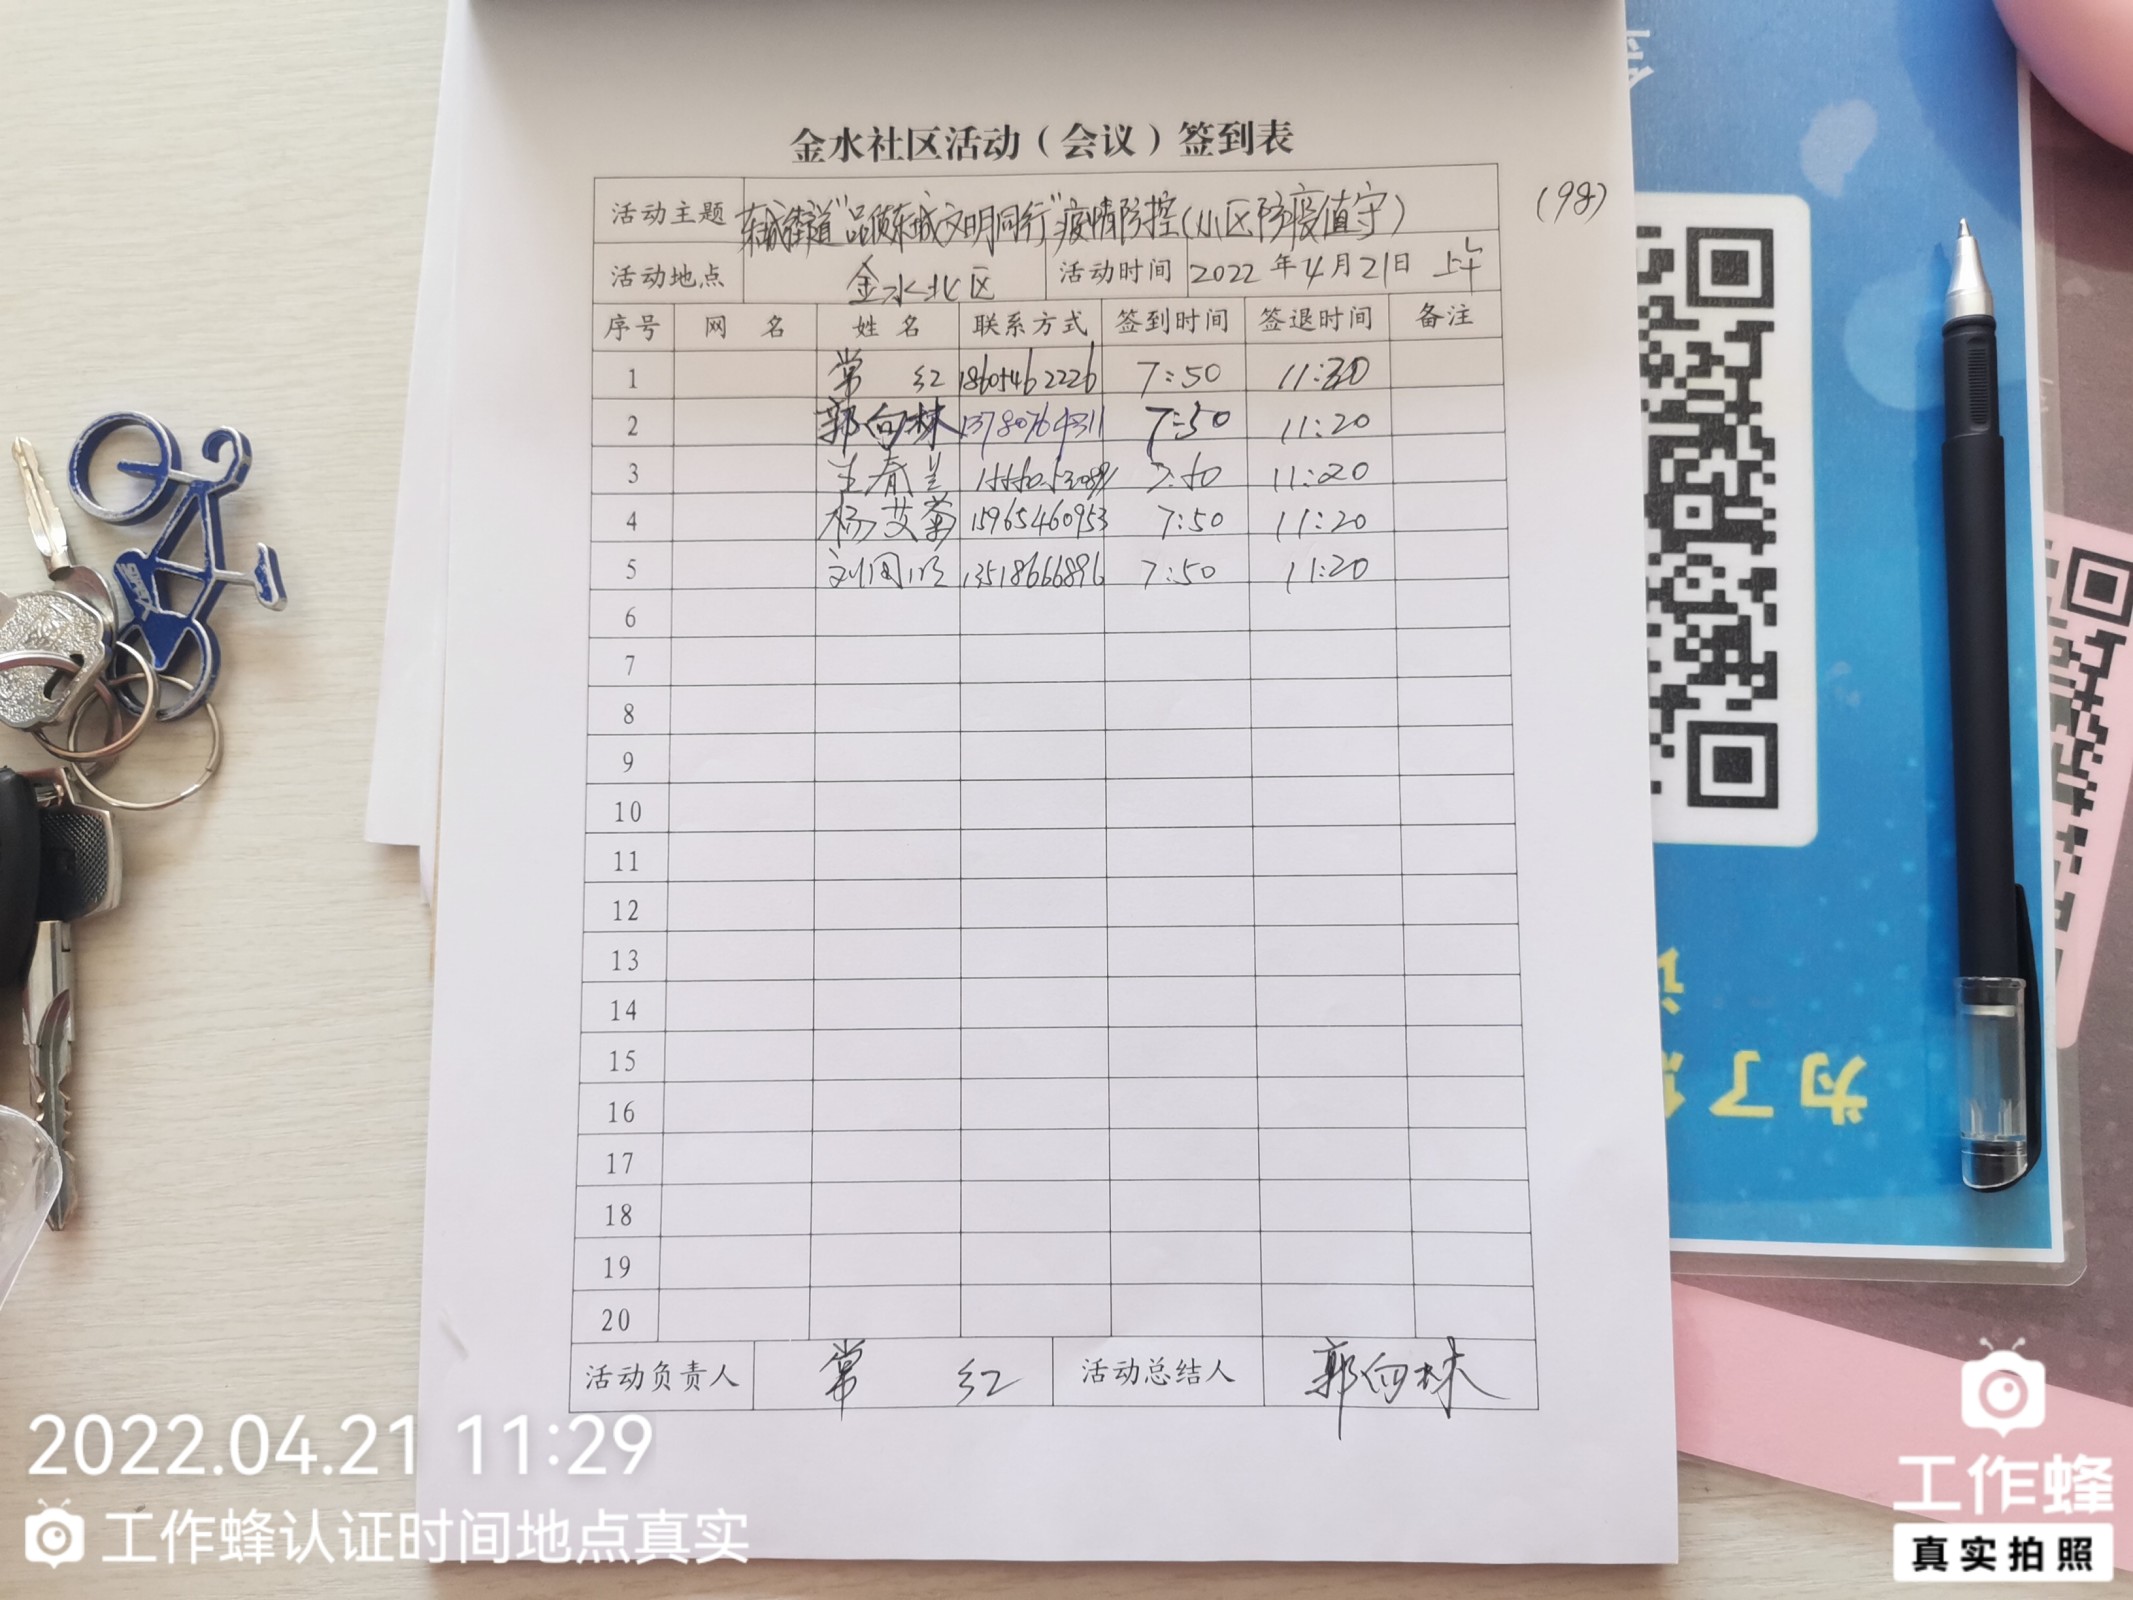 金水社区活动（会议）签到表
(98)
活动主题 东城街道“品质东城文明同行”疫情防控(小区防疫值守)
活动地点 金水北区 活动时间 2022年4月21日 上午
序号 网名 姓名 联系方式 签到时间 签退时间 备注
1 常红 18605462226 7:50 11:20
2 郭向林 13780764311 7:50 11:20
3 王春兰 7:50 11:20
4 杨艾菊 15965460953 7:50 11:20
5 13518666896 7:50 11:20
6
7
8
9
10
11
12
13
14
15
16
17
18
19
20
活动负责人 常红 活动总结人 郭向林
为了
2022.04.21 11:29
工作蜂认证时间地点真实
工作蜂
真实拍照